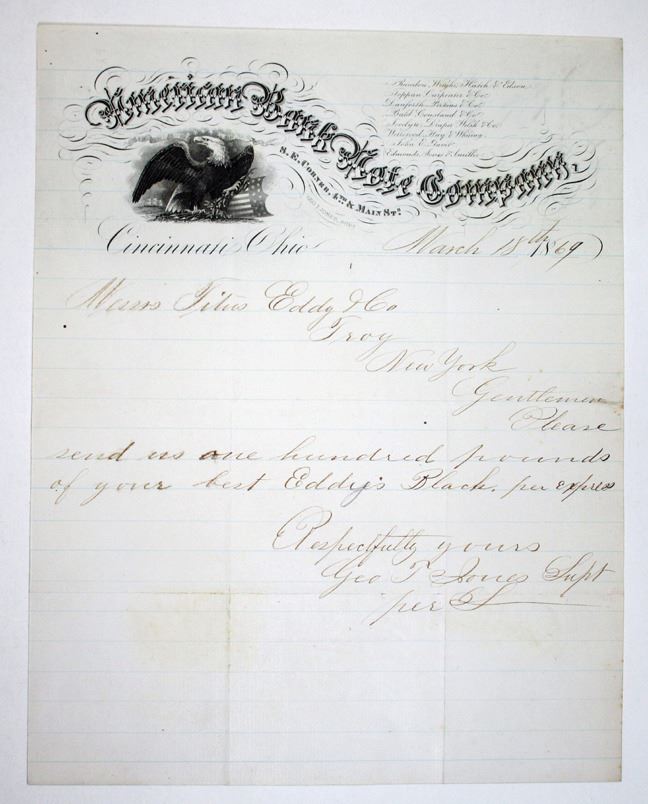 American Bank Note Company.
Rawdon, Wright, Hatch & Edson
Toppan Carpenter & Co.
Danforth Perkins & Co.
Bald Cousland & Co.
Jocelyn Draper Welsh & Co.
Wellstood Hay & Whiting
John E. Gavit
S.E. Corner. 4th & Main Sts.
Cincinnati Ohio March 18th 1869
Messrs Titus Eddy & Co
Troy
New York
Gentlemen
Please
send us one hundred pounds
of your best Eddy's Black. per express
Respectfully yours
Geo T Jones Supt
per